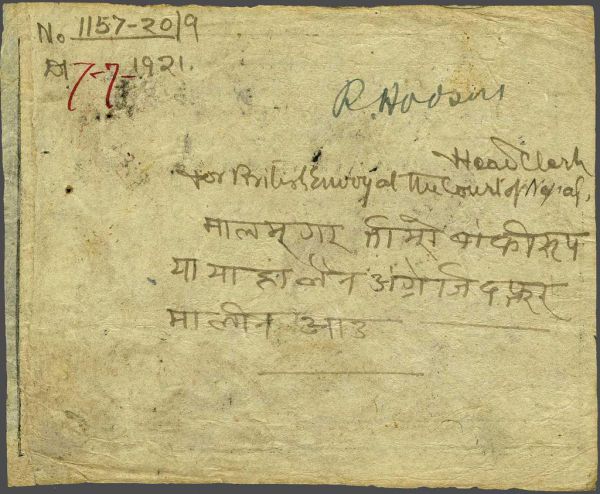 No. 1157-20/9
Dt 7-7-1921.
R. Hodson
Head Clerk
for British Envoy at the Court of Nepal.
मालम् गर तीम्रो बाकी रूप
या याहा लीन अंग्रेजि दफ्तर
मा लीन आउ